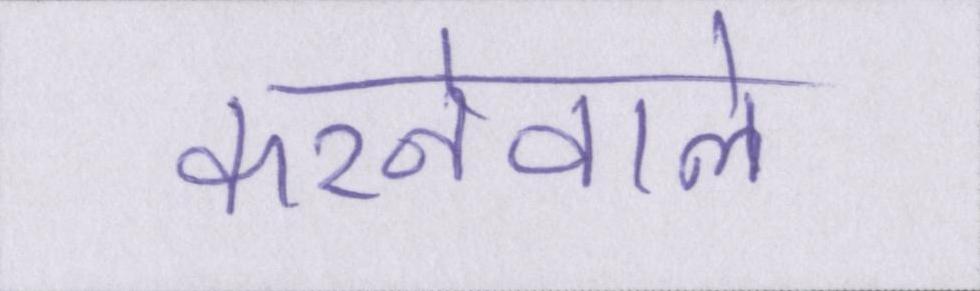 करनेवाले